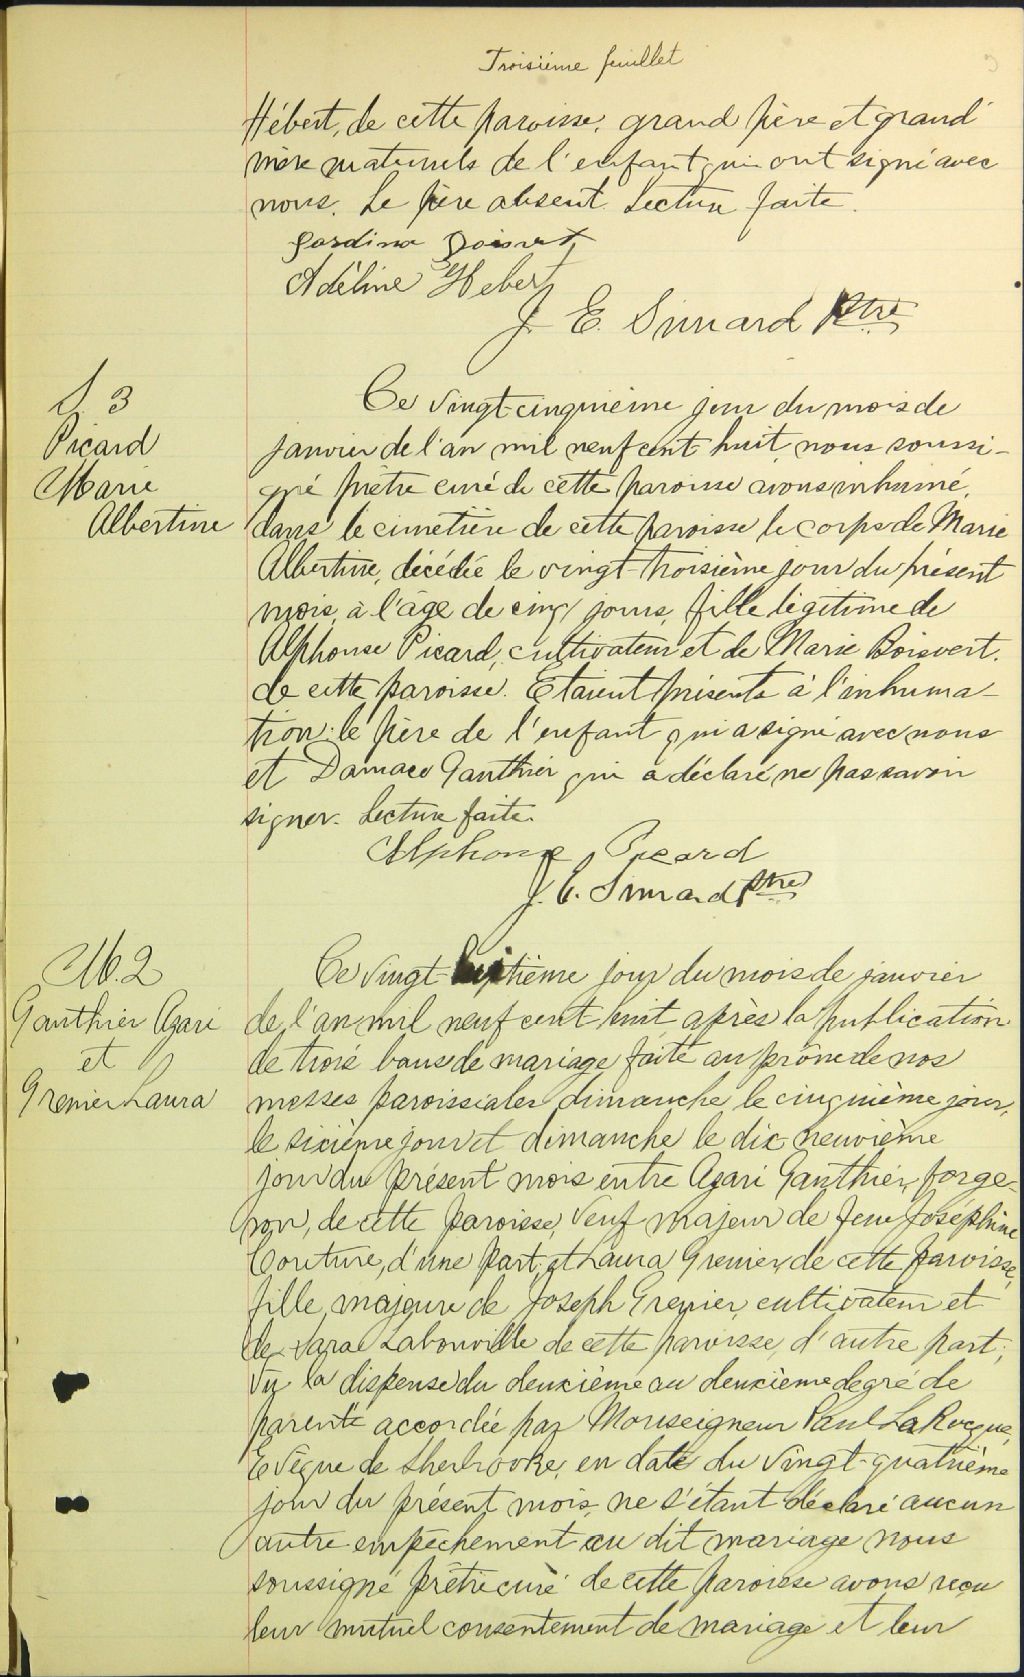 Troisième feuillet
3
Hébert, de cette paroisse, grand père et grand'
mère maternels de l'enfant qui ont signé avec
nous. Le père absent. Lecture faite.
Boisvert
Adéline Hebert
J. E. Simard Ptre
S. 3
Picard
Marie
Albertine
Ce vingt-cinquième jour du mois de
janvier de l'an mil neuf cent huit, nous soussi-
gné prêtre curé de cette paroisse avons inhumé,
dans le cimetière de cette paroisse le corps de Marie
Albertine, décédée le vingt-troisième jour du présent
mois, à l'âge de cinq jours, fille légitime de
Alphonse Picard, cultivateur et de Marie Boisvert.
de cette paroisse. Etaient présents à l'inhuma-
tion: le père de l'enfant qui a signé avec nous
et Damace Gauthier qui a déclaré ne pas savoir
signer. Lecture faite.
Alphonse Picard
J. E. Simard Ptre
M. 2
Gauthier Azari
et
Grenier Laura
Ce vingt-septième jour du mois de janvier
de l'an mil neuf cent huit après la publication
de trois bans de mariage faite au prône de nos
messes paroissiales dimanche le cinquième jour,
le sixième jour et dimanche le dix-neuvième
jour du présent mois entre Azari Gauthier, forge-
ron, de cette paroisse, veuf majeur de feue Joséphine
Couture, d'une part, et Laura Grenier, de cette paroisse,
fille majeure de Joseph Grenier, cultivateur et
de Sara Labonville de cette paroisse, d'autre part;
Vu la dispense du deuxième au deuxième degré de
parenté accordée par Monseigneur Paul LaRocque,
Evêque de Sherbrooke, en date du vingt-quatrième
jour du présent mois, ne s'étant déclaré aucun
autre empêchement au dit mariage nous
soussigné prêtre curé de cette paroisse avons reçu
leur mutuel consentement de mariage et leur